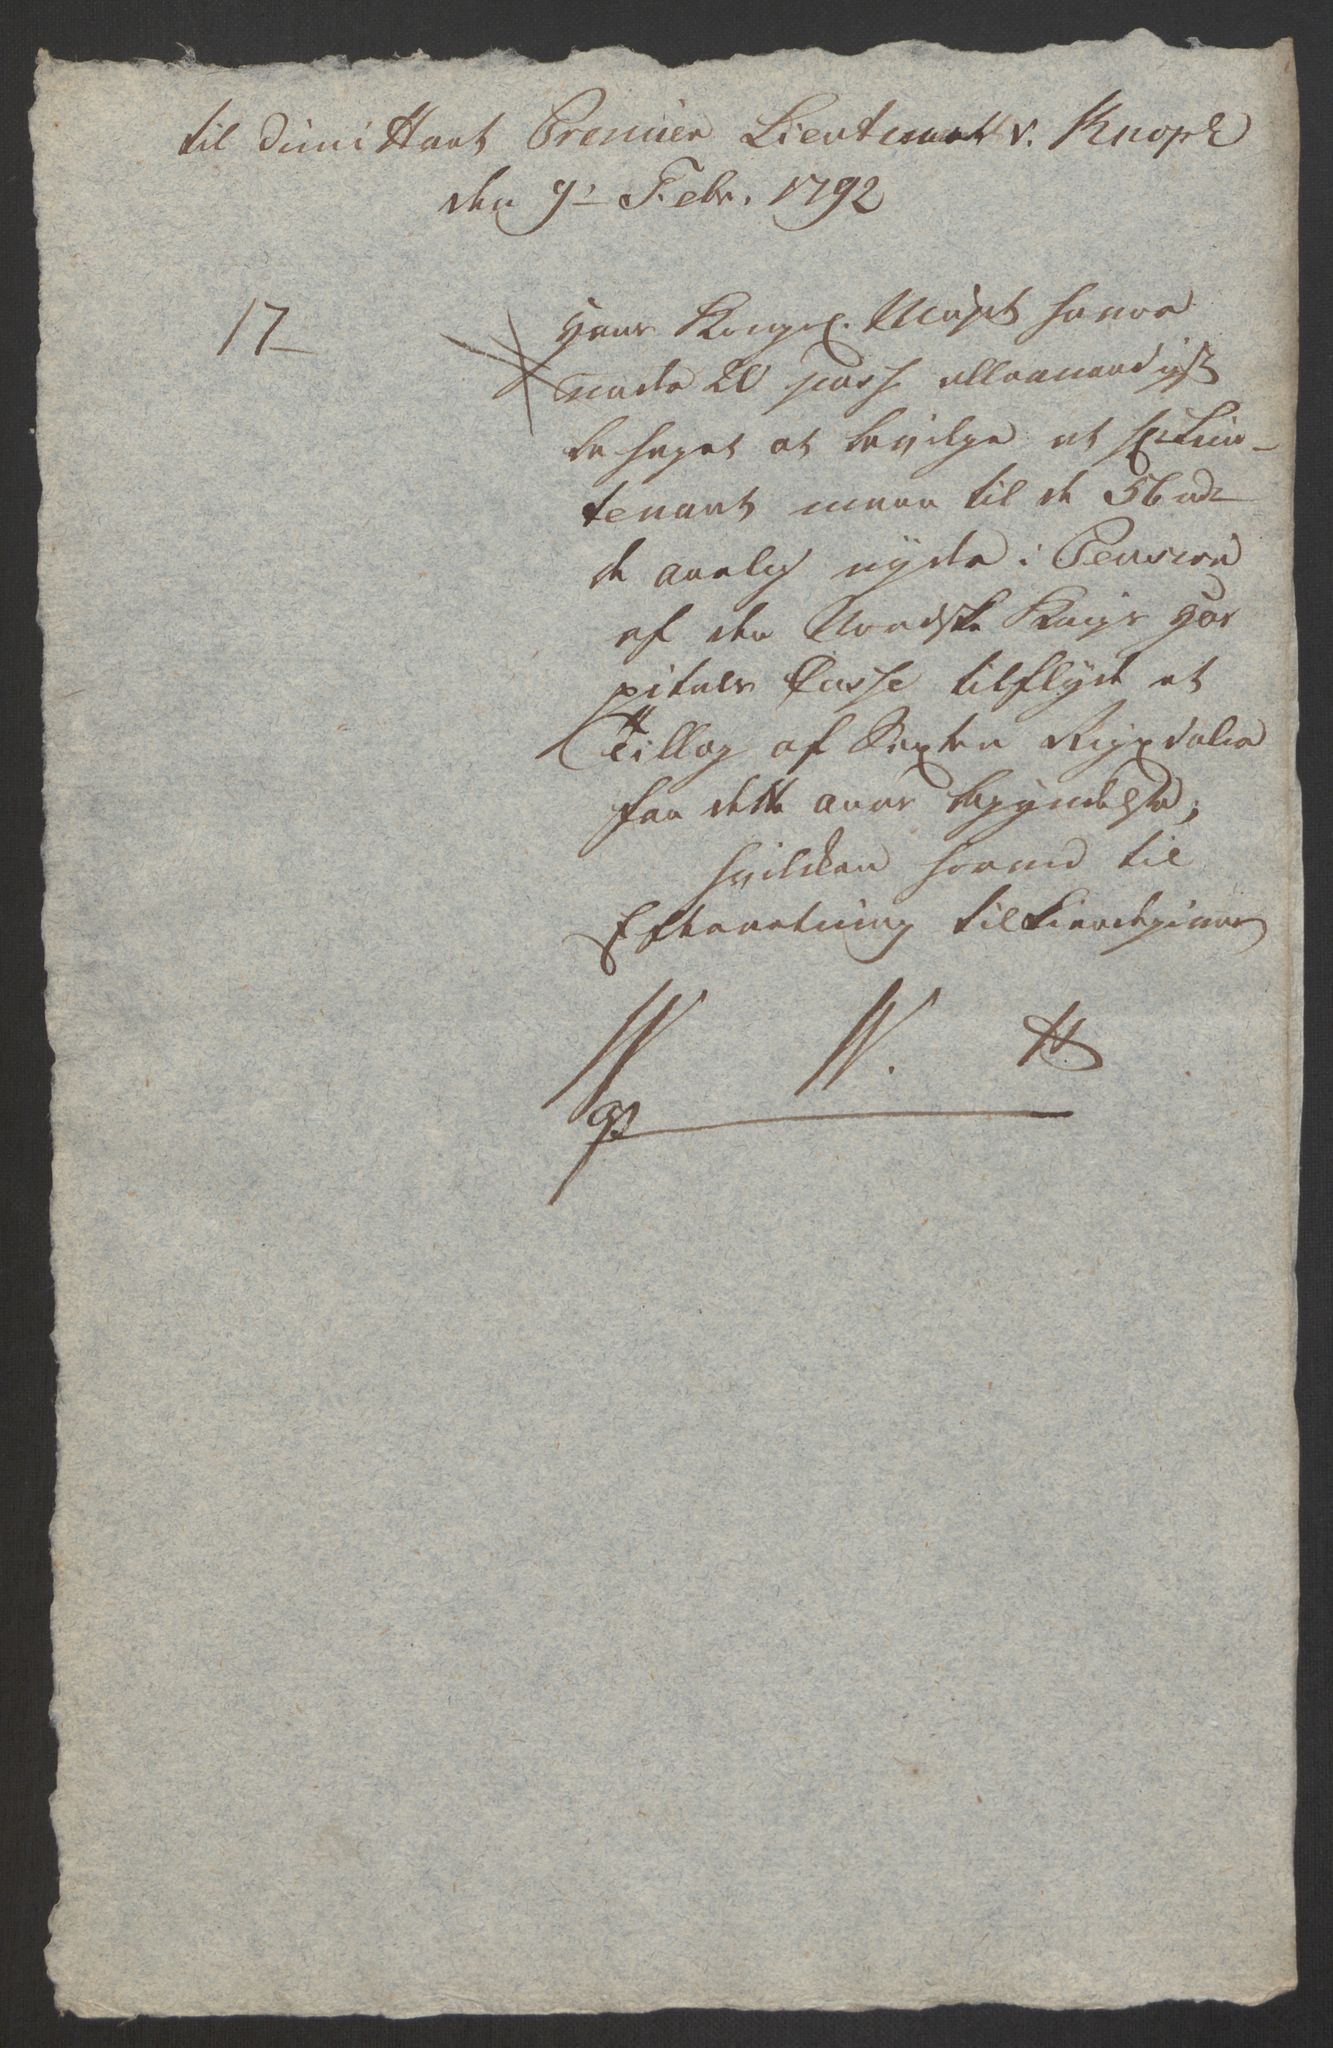 til dimittent Premier Lieutenant v. Knoph
den 9de Febr. 1792
17
Hans Kongel. Mayst haver
under 20 pass: allernaadigst
behaget at bevilge at Hr: Lieu-
tenant maa til de 56 rd
de aarlig nyder i Pension
af den Norske Krigs Hos
pitals Casse tilflyde et
Tillæg af Sexten Rigsdaler
fra dette aars begyndelse;
hvilket herved til
Efterretning tilkiendegives
W W. H